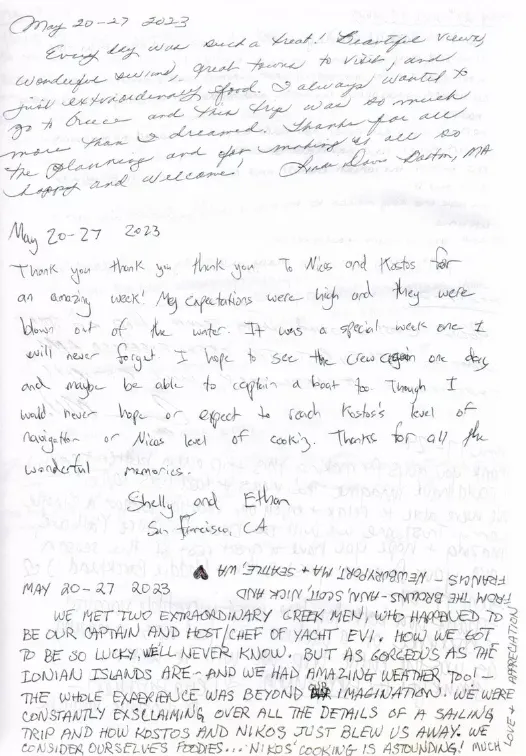 May 20-27 2023
Every day was such a treat! Beautiful views,
wonderful swims, great towns to visit, and
just extraordinary food. I always wanted to
go to Greece and this trip was so much
more than I dreamed. Thanks for all
the planning and for making us all so
happy and welcome! Boston, MA
May 20-27 2023
Thank you thank you thank you To Nicos and Kostos for
an amazing week! My expectations were high and they were
blown out of the water. It was a special week one I
will never forget I hope to see the crew again one day
and maybe be able to captain a boat too. Though I
would never hope or expect to reach Kostos's level of
navigation or Nicos level of cooking. Thanks for all the
wonderful memories.
Shelly and Ethan
San Francisco, CA
FROM THE BROWNS - AMN, SCOTT, NICK AND
FRANCIS - NEWBURYPORT, MA + SEATTLE, WA
MAY 20-27 2023
WE MET TWO EXTRAORDINARY GREEK MEN, WHO HAPPENED TO
BE OUR CAPTAIN AND HOST/CHEF OF YACHT EVI. HOW WE GOT
TO BE SO LUCKY, WE'LL NEVER KNOW. BUT AS GORGEOUS AS THE
IONIAN ISLANDS ARE - AND WE HAD AMAZING WEATHER TOO! -
THE WHOLE EXPERIENCE WAS BEYOND IMAGINATION. WE WERE
CONSTANTLY EXSCLAIMING OVER ALL THE DETAILS OF A SAILING
TRIP AND HOW KOSTOS AND NIKOS JUST BLEW US AWAY. WE
CONSIDER OURSELVES FOODIES... NIKOS' COOKING IS ASTOUNDING! MUCH
LOVE + APPRECIATION